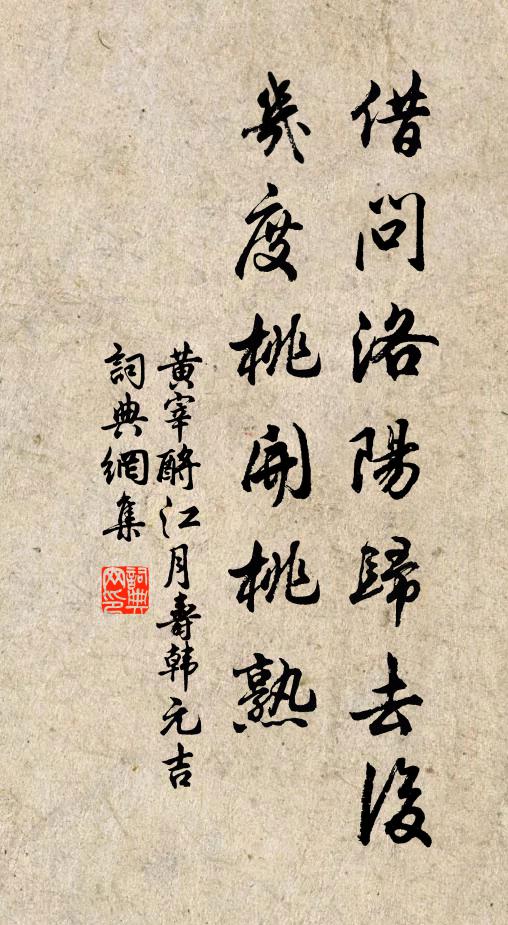 借問洛陽歸去後
幾度桃開桃熟
黄宰酹江月壽韩元吉
詞典網集
詞典
网印